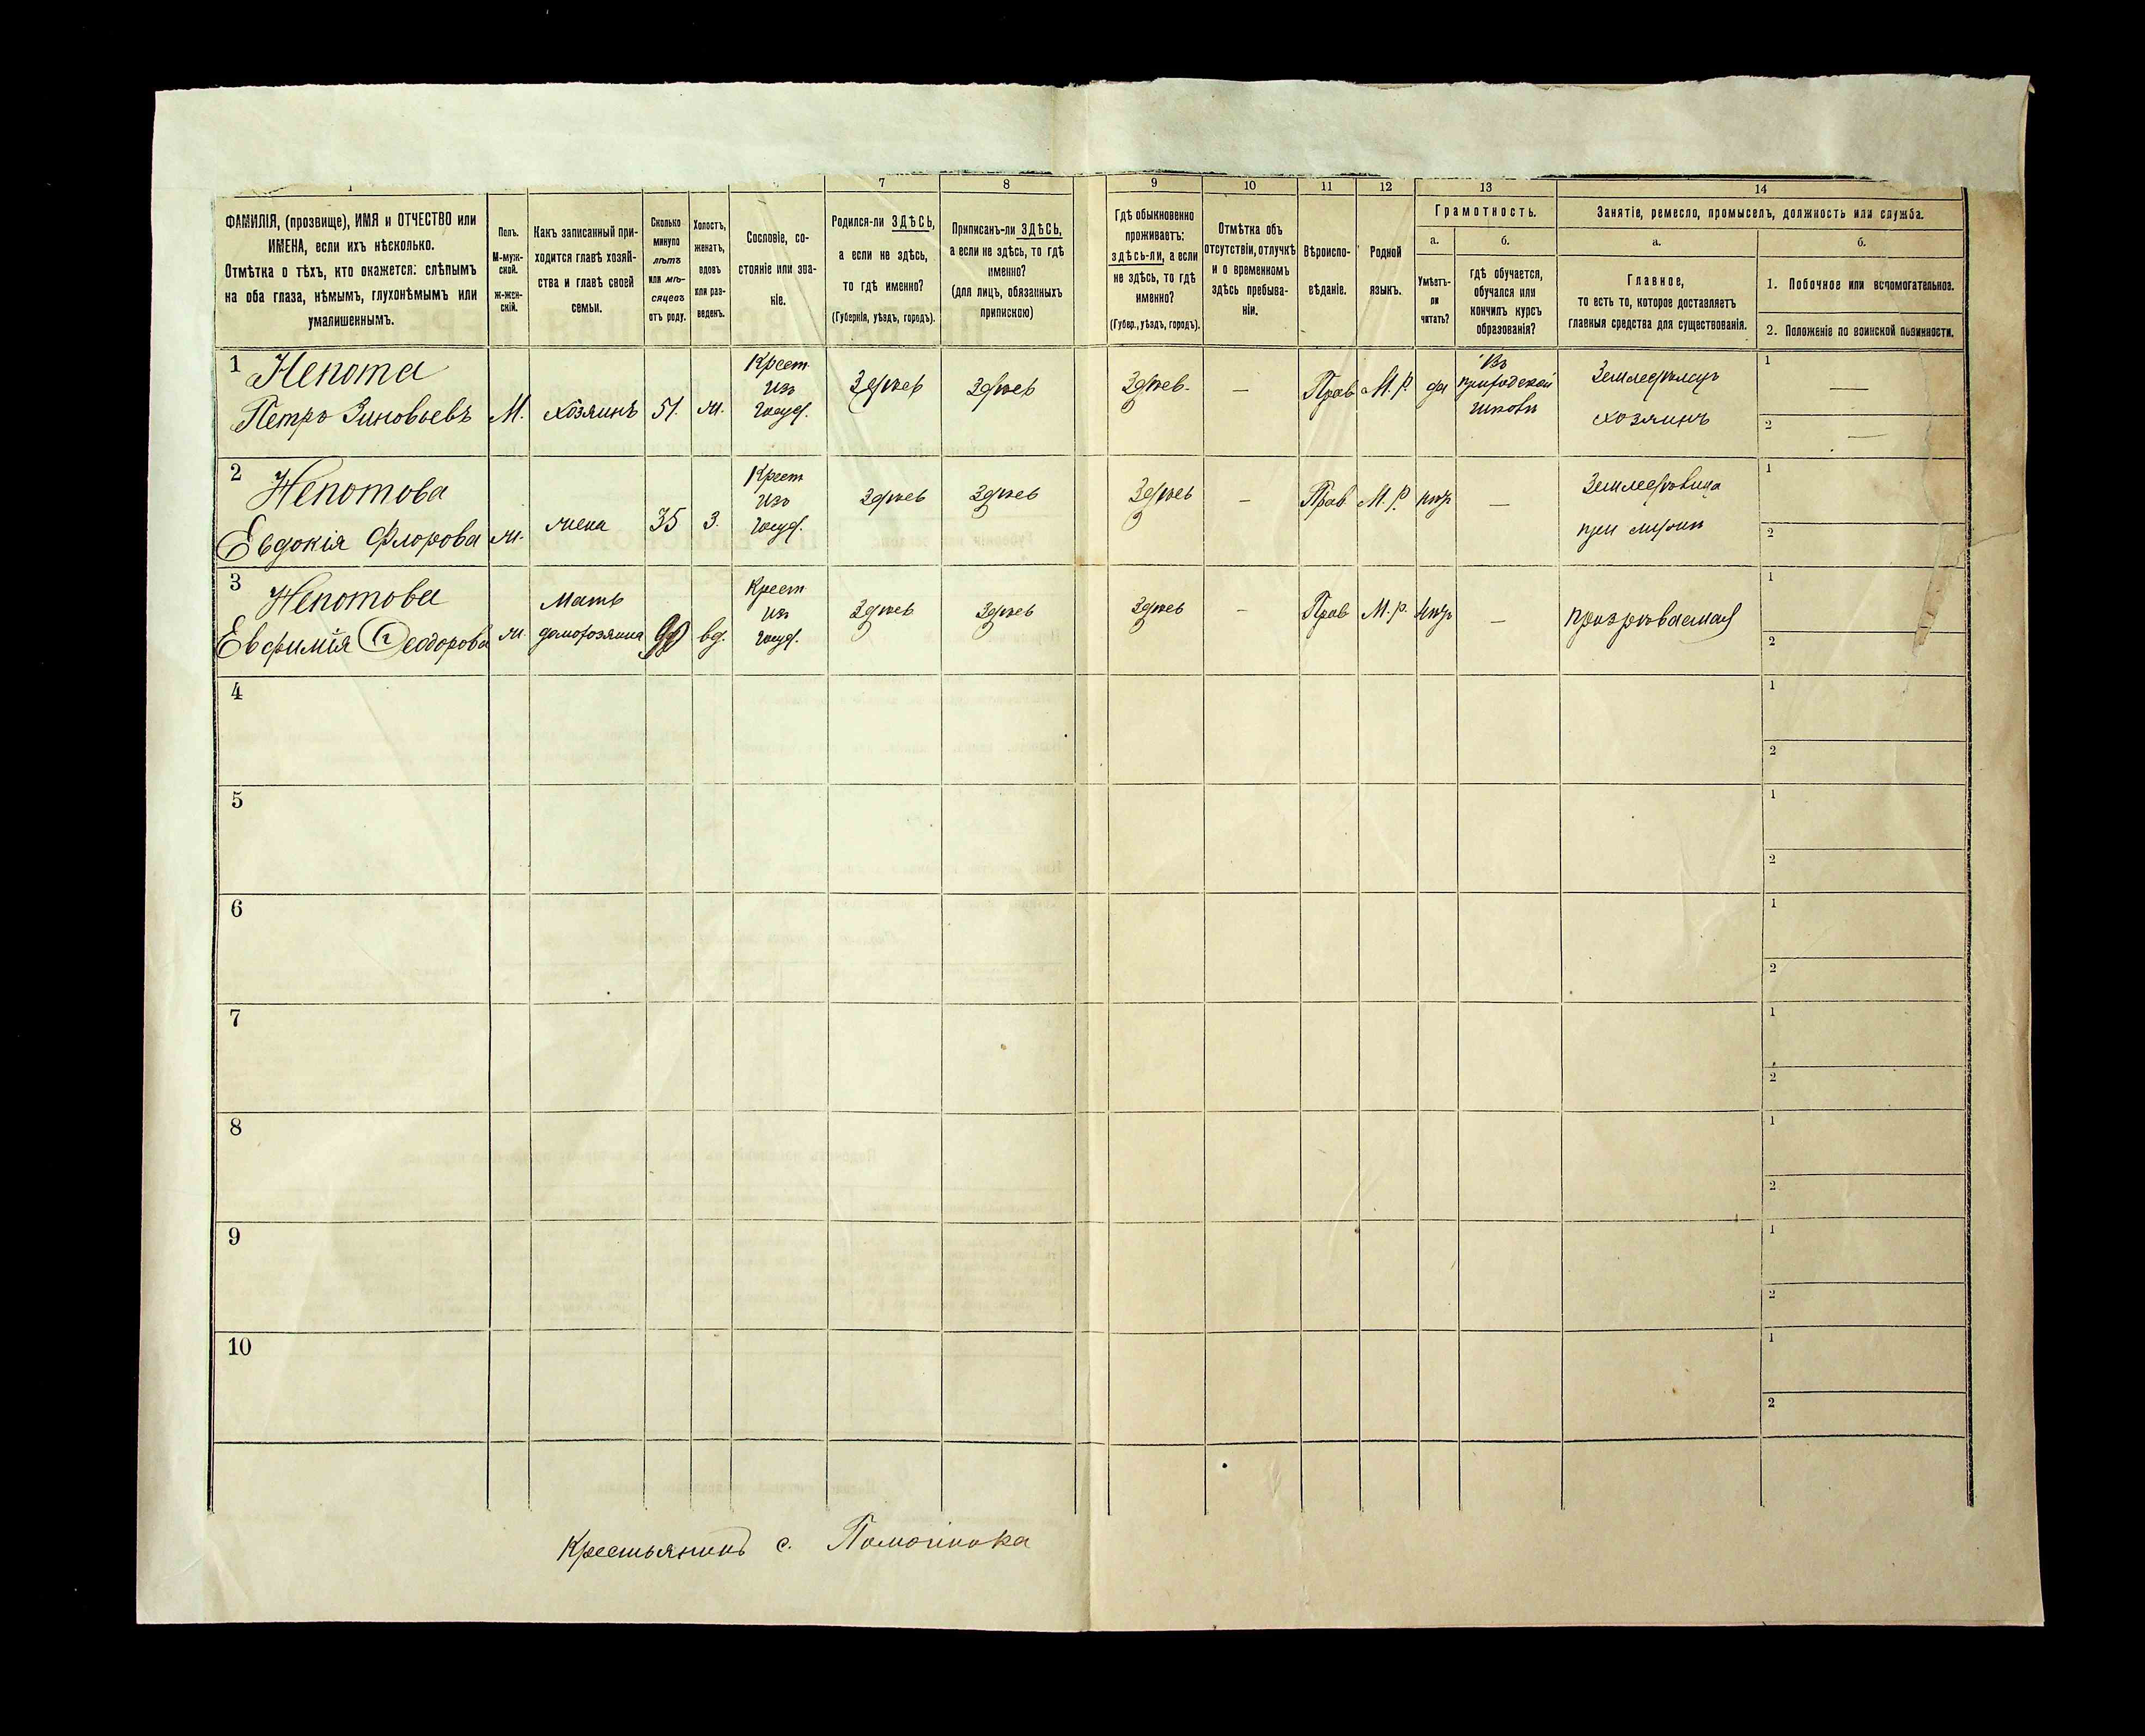 1
7
8
9
10
11
12
13
14
ФАМИЛІЯ, (прозвище), ИМЯ и ОТЧЕСТВО или
ИМЕНА, если ихъ нѣсколько.
Отмѣтка о тѣхъ, кто окажется: слѣпымъ
на оба глаза, нѣмымъ, глухонѣмымъ или
умалишеннымъ.
Полъ.
М-муж-
ской.
Ж-жен-
скій.
Какъ записанный при-
ходится главѣ хозяй-
ства и главѣ своей
семьи.
Сколько
минуло
лѣтъ
или мѣ-
сяцевъ
отъ роду.
Холостъ,
женатъ,
вдовъ
или раз-
веденъ.
Сословіе, со-
стояніе или зва-
ніе.
Родился-ли ЗДѢСЬ,
а если не здѣсь,
то гдѣ именно?
(Губернія, уѣздъ, городъ).
Приписанъ-ли ЗДѢСЬ,
а если не здѣсь, то гдѣ
именно?
(для лицъ, обязанныхъ
припискою)
Гдѣ обыкновенно
проживаетъ:
здѣсь-ли, а если
не здѣсь, то гдѣ
именно?
(Губер., уѣздъ, городъ).
Отмѣтка объ
отсутствіи, отлучкѣ
и о временномъ
здѣсь пребыва-
ніи.
Вѣроиспо-
вѣданіе.
Родной
языкъ.
Грамотность.
а.
б.
Умѣетъ-
ли
читать?
гдѣ обучается,
обучался или
кончилъ курсъ
образованія?
Занятіе, ремесло, промыселъ, должность или служба.
а.
б.
Главное,
то есть то, которое доставляетъ
главныя средства для существованія.
1. Побочное или вспомогательное.
2. Положеніе по воинской повинности.
1 Непота
Петръ Зиновьевъ
М.
хозяинъ
51.
ж.
Крест
изъ
госуд.
Здѣсь
Здѣсь
Здѣсь
—
Прав
М. Р.
да
Въ
школѣ
Земледѣлецъ
хозяинъ
1 —
2 —
2 Непотова
Евдокія Флорова
ж.
жена
35
З.
Крест
изъ
госуд.
Здѣсь
Здѣсь
Здѣсь
—
Прав
М. Р.
нѣтъ
—
при мужѣ
1
2
3 Непотова
Евфимія Ѳеодорова
ж.
Мать
домохозяина
90
вд.
Крест
изъ
госуд.
Здѣсь
Здѣсь
Здѣсь
—
Прав
М. р.
нѣтъ
—
призрѣваемая
1
2
4
1
2
5
1
2
6
1
2
7
1
2
8
1
2
9
1
2
10
1
2
Крестьянинъ с.